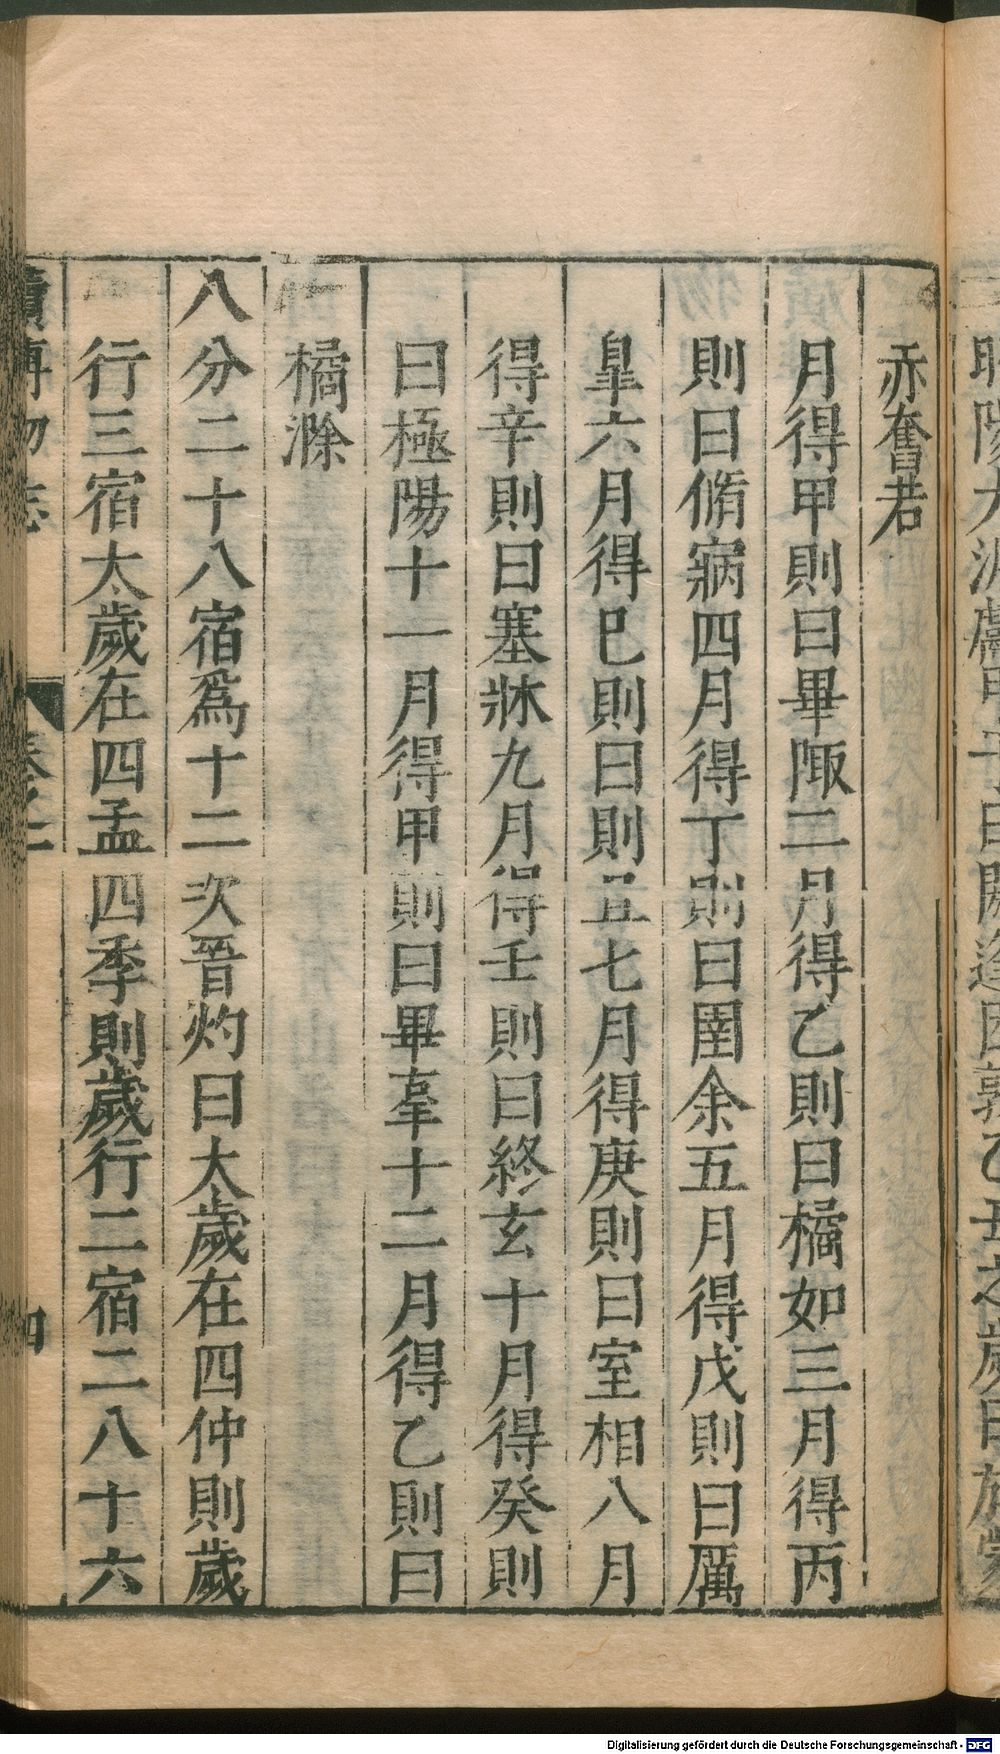 赤奮若
月得甲則曰畢陬二月得乙則曰橘如三月得丙
則曰脩寎四月得丁則曰圉余五月得戊則曰厲
皐六月得巳則曰則且七月得庚則曰室相八月
得辛則曰塞牂九月得壬則曰終玄十月得癸則
曰極陽十一月得甲則曰畢辜十二月得乙則曰
橘滁
八分二十八宿爲十二次晉灼曰太歲在四仲則歲
行三宿太歲在四孟四季則歲行二宿二八十六
續博物志 卷之一 四
Digitalisierung gefördert durch die Deutsche Forschungsgemeinschaft - DFG